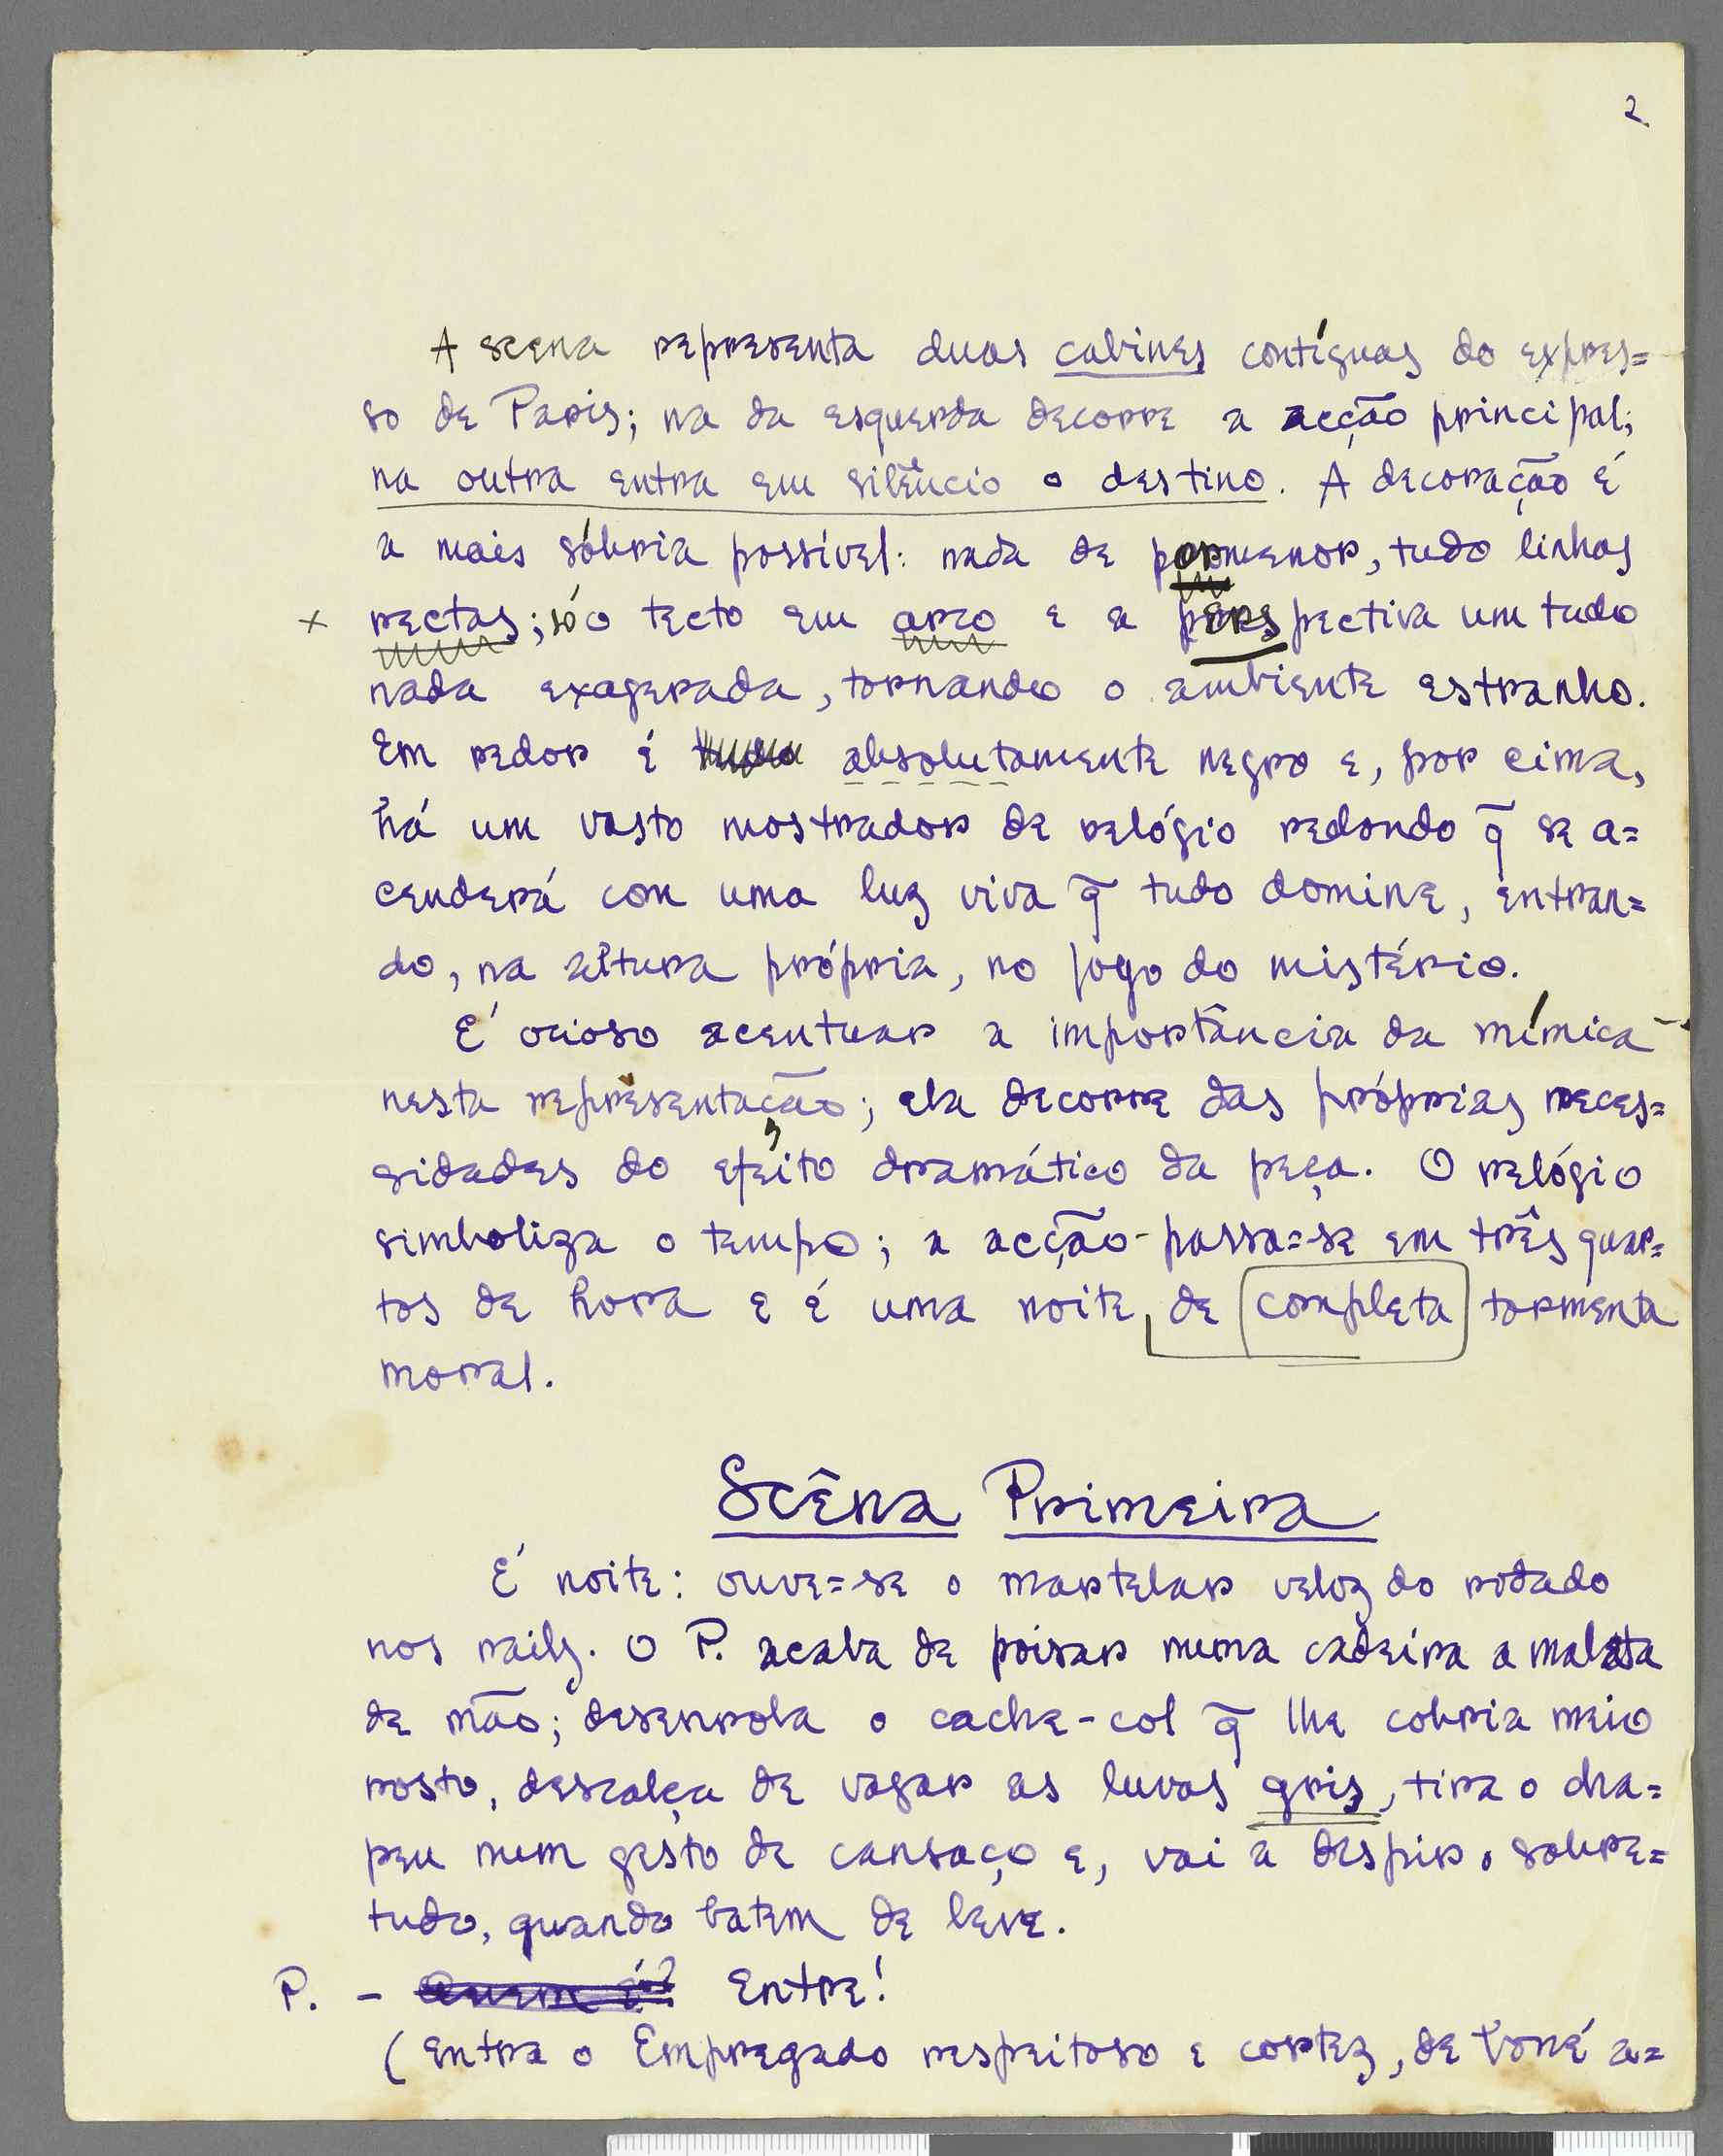 2.
A scena representa duas cabines contíguas do expres=
so de Paris; na da esquerda decorre a acção principal;
na outra entra em silêncio o destino. A decoração é
a mais sóbria possível: nada de pormenor, tudo linhas
x rectas; só o tecto em arco e a perspectiva um tudo
nada exagerada, tornando o ambiente estranho.
Em redor é tudo absolutamente negro e, por cima,
há um vasto mostrador de relógio redondo q̃ se a=
cenderá com uma luz viva q̃ tudo domine, entran=
do, na altura própria, no jogo do mistério.
É ocioso acentuar a importância da mímica
nesta representação; ela decorre das próprias neces=
sidades do efeito dramático da peça. O relógio
simboliza o tempo; a acção passa=se em três quar=
tos de hora e é uma noite de completa tormenta
moral.
Scêna Primeira
É noite: ouve=se o martelar veloz do rodado
nos rails. O P. acaba de poisar numa cadeira a maleta
de mão; desenrola o cache-col q̃ lhe cobria meio
rosto, descalça de vagar as luvas gris, tira o cha=
peu num gesto de cansaço e, vai a despir o sobre=
tudo, quando batem de leve.
P. - Quem é? Entre!
(Entra o Empregado respeitoso e cortez, de boné a=